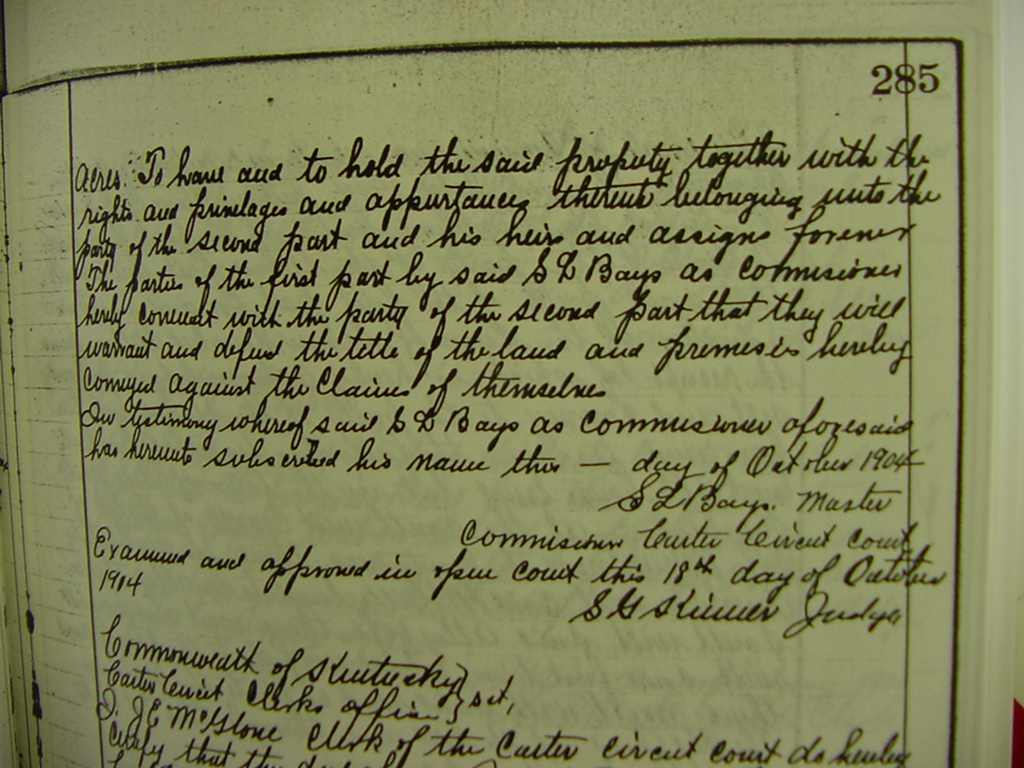 285
Acres. To have and to hold the said property together with the
rights and privelages and appurtances thereunto belonging unto the
party of the second part and his heirs and assigns forever
The parties of the first part by said S L Bays as Commisioner
hereby covenant with the party of the second part that they will
warrant and defend the title of the land and premeses hereby
conveyed against the Claims of themselves
In testimony whereof said S L Bays as Commisioner aforesaid
has hereunto subscribed his name this — day of October 1904
S L Bays. Master
Commisioner Carter Circuit Court
Examined and approved in open Court this 18th day of October
1904
S G Kinner Judge
Commonwealth of Kentucky } sct,
Carter Circuit Clerks office }
I. J E McGlone Clerk of the Carter Circuit Court do hereby
Certify that the